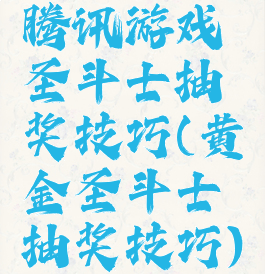 腾讯游戏
圣斗士抽
奖技巧(黄
金圣斗士
抽奖技巧)